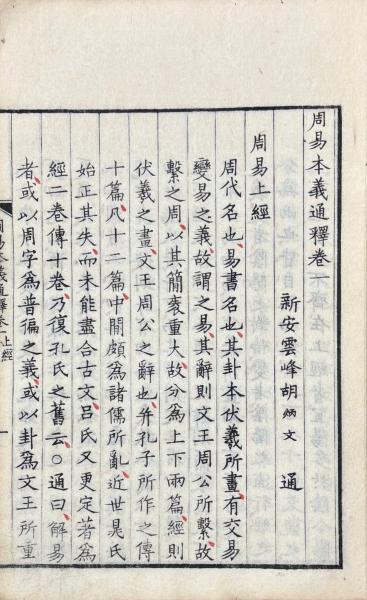 周易本義通釋卷一
新安雲峰胡炳文 通
周易上經
周代名也易書名也其卦本伏羲所畫有交易
變易之義故謂之易其辭則文王周公所繫故
繫之周以其簡袠重大故分為上下兩篇經則
伏羲之畫文王周公之辭也并孔子所作之傳
十篇凡十二篇中間頗為諸儒所亂近世晁氏
始正其失而未能盡合古文吕氏又更定著為
經二卷傳十卷乃復孔氏之舊云○通曰解易
者或以周字為普徧之義或以卦為文王所重
周易本義通釋卷一 上經